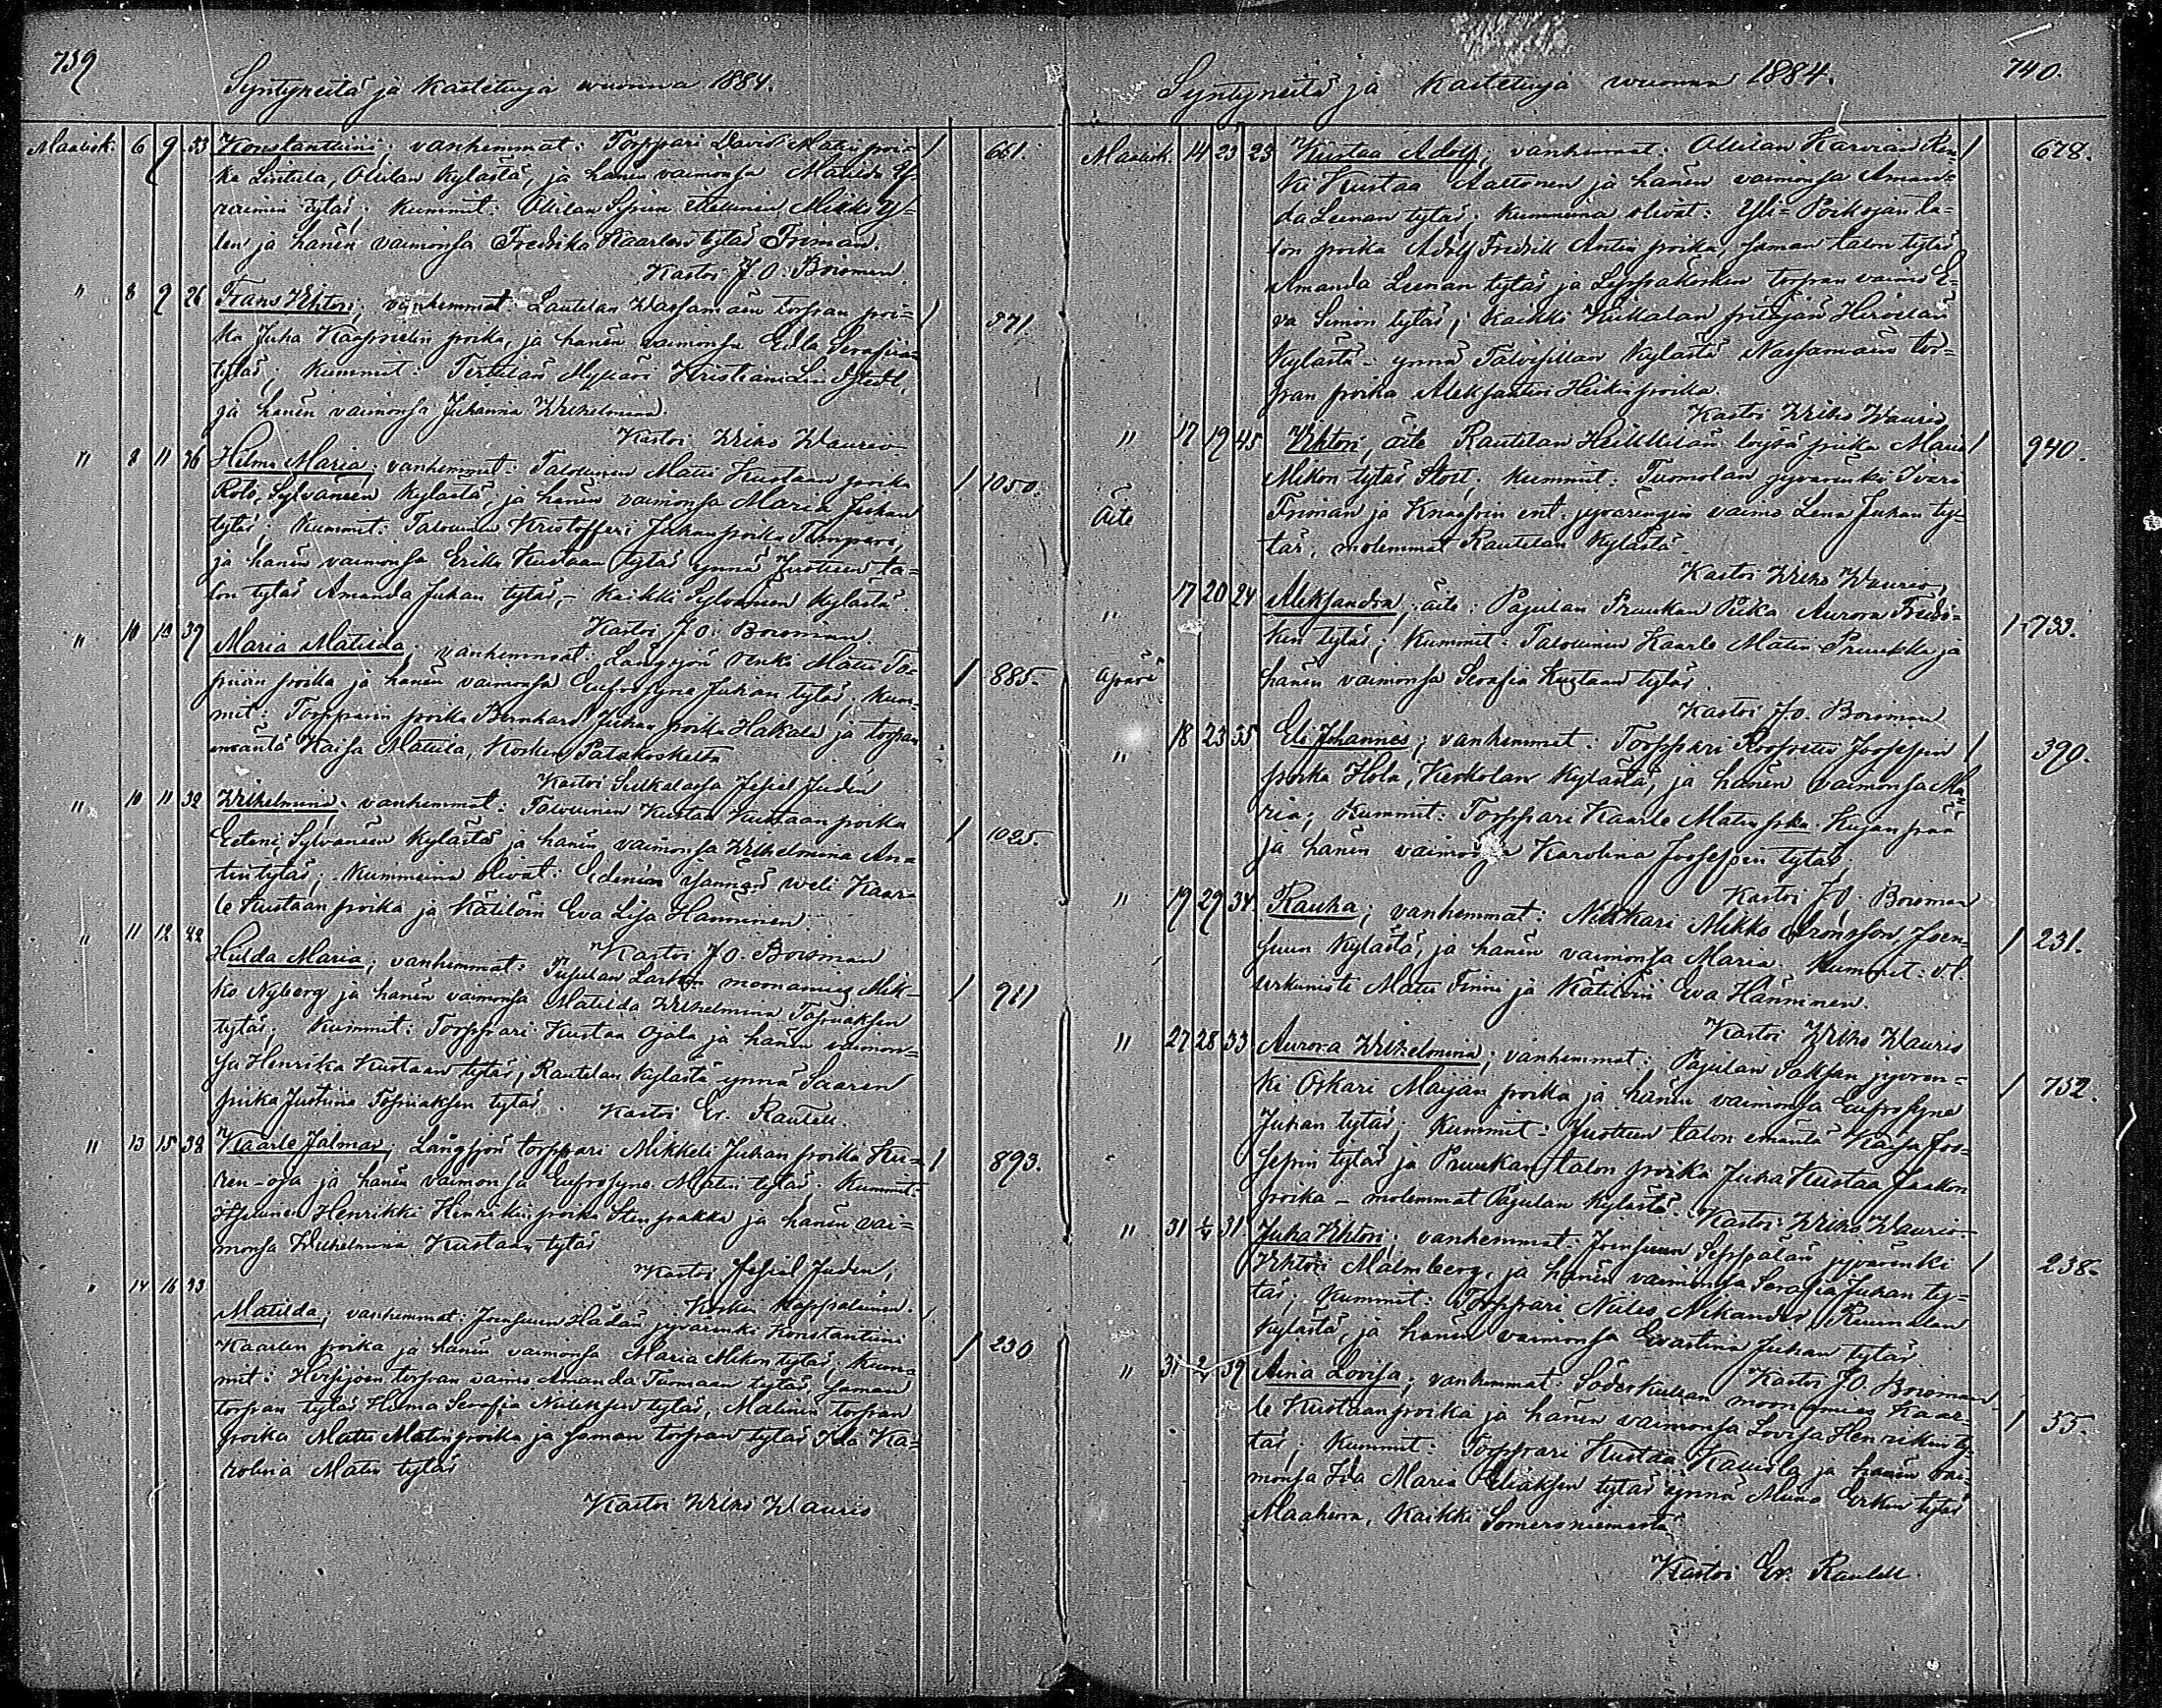 739
Syntyneitä ja kastetuja wuonna 1884.
Maalisk. 6 9 33 Konstantiini; vanhemmat: Torppari David Matin poi= 1 661.
ka Lintula, Ollilan kylästä, ja hänen vaimonsa Matilda
tytär; Kummit: Ollilan itsellinen Mikko
ja hänen vaimonsa Fredrika Kaarlen tytär Friman.
Kastoi J. O. Boisman
" 8 9 26 Frans Vihtori; vanhemmat: Lautelan torpan poi= 1 371.
ka Juha poika, ja hänen vaimonsa Edla Serafia
tytär; Kummit: Terttilän Mylläri Kristiani
ja hänen vaimonsa Johanna Wilhelmina.
Kastoi Wilho Waurio
" 8 11 36 Hilma Maria; vanhemmat: Talollinen Matti Kustaan poika 1 1050.
Sylväneen kylästä ja hänen vaimonsa Maria Juhan
tytär; Kummit: Talollinen Kristofferi Juhan poika
ja hänen vaimonsa Erika Kustaan tytär ynnä ta=
lon tytär Amanda Juhan tytär, - kaikki Sylvänen kylästä.
Kastoi J. O. Boisman.
" 10 39 Maria Matilda; vanhemmat: Långsjön renki Matti To= 1 885.
piian poika ja hänen vaimonsa Eufrosyne Juhan tytär; kum=
mit: Torpparin poika Bernhard Juhan poika Hakala ja torpan
emäntä Kaisa Matilda, Kosken
Kastoi Jesial Juden
" 10 11 32 Wilhelmiina; vanhemmat: Talollinen Kustaa Kustaan poika 1 1025.
Eeteni, Sylväneen kylästä ja hänen vaimonsa Wilhelmina An=
tintytär; Kummeina olivat: isännän weli Kaar=
le Kustaan poika ja Kätilöin Eva Lisa Hänninen.
Kastoi J. O. Boisman
" 11 12 42 Hilda Maria; vanhemmat: moonamies Mik= 1 911
ko Nyberg ja hänen vaimonsa Matilda Wilhelmina
tytär; Kummit: Torppari Kustaa Ojala ja hänen vaimon=
sa Henrika Kustaan tytär, Rautelan kylästä ynnä Saaren
piika Justiina tytär. Kastoi Er. Rautell.
" 13 15 38 Kaarle Jalmar; Långsjön torppari Mikkeli Juhan poika Ku= 1 893.
ren-oja ja hänen vaimonsa Eufrosyne Matin tytär. Kummit:
Itsellinen Henrikki Henrikin poika Stenpakka ja hänen vai=
monsa Wilhelmina Kustaan tytär
Kastoi Jesial Juden,
Kosken kappalainen.
" 14 16 33 Matilda; vanhemmat: Joensuun Hädän jyvärenki Konstantiini 1 230
Kaarlen poika ja hänen vaimonsa Maria Mikon tytär; Kum=
mit: torpan vaimo Amanda Tuomaan tytär, saman
torpan tytär Hilma Serafia tytär, torpan
poika Matti Matin poika ja saman torpan tytär Ida Ka=
rolina Matin tytär
Kastoi Wilho Waurio
Syntyneitä ja kastetuja wuonna 1884.
740.
Maalisk. 14 23 23 Kustaa Adolf; vanhemmat: Ollilan Ren= 1 678.
ki Kustaa Aaltonen ja hänen vaimonsa Aman=
da Leenan tytär; Kummeina olivat: Yli=Poikojan ta=
lon poika Adolf Fredrik Antin poika, saman talon tytär
Amanda Leenan tytär ja Leppäkosken torpan vaimo E=
va Simon tytär; kaikki Kiikalan pitäjän Hirvelän
kylästä - ynnä Talvisillan kylästä tor=
pan poika Aleksanteri Heikin poika.
Kastoi Wilho Waurio
" 17 19 45 Vihtori, äite Rautelan piika Maria 1 940.
Äite
Mikon tytär. Kummit: Tuomolan jyvärenki Ivari
Friman ja ent. jyvärengin vaimo Lena Juhan ty=
tär, molemmat Rautelan kylästä.
Kastoi Wilho Waurio
" 17 20 24 Aleksandra; äite: Pajulan Pruukan Piika Aurora Fredri= 1 733.
kin tytär; Kummit: Talollinen Kaarle Matin Pruukka ja
äpärä
hänen vaimonsa Serafia Kustaan tytär
Kastoi J. O. Boisman
" 18 23 35 Eli Johannes; vanhemmat: Torppari Joosepin 1 390.
poika Hola, Kerkolan kylästä, ja hänen vaimonsa Ma=
ria; Kummit: Torppari Kaarle Matin pka. Kujanpää
ja hänen vaimonsa Karolina Joosepin tytär.
Kastoi J. O. Boisman
" 19 29 34 Rauha; vanhemmat: Nikkari Mikko Aronsson, Joen= 1 231.
suun kylästä, ja hänen vaimonsa Maria. Kummit: v.t.
urkuniste Matti Finni ja Kätilöin Eva Hänninen.
Kastoi Wilho Waurio
" 27 28 33 Aurora Wilhelmina; vanhemmat: Pajulan Saksan jyvren= 1 732.
ki Oskari Maijan poika ja hänen vaimonsa Eufrosyne
Juhan tytär; Kummit: talon emäntä Kaisa Joo=
sepin tytär ja Pruukan talon poika Juha Kustaa Jaakon
poika - molemmat Pajulan kylästä. Kastoi Wilho Waurio.
" 31 1/4 31 Juha Vihtori; vanhemmat: Joensuun Seppälän jyvärenki 1 238.
Vihtori Malmberg, ja hänen vaimonsa Serafia Juhan ty=
tär; Kummit: Torppari Niiles Nikander, Ruunalan
kylästä, ja hänen vaimonsa Evastina Juhan tytär.
Kastoi J. O. Boisman
" 31 2/4 39 Aina Lovisa; vanhemmat: Söderkullan moonamies Kaar= 1 55.
le Kustaanpoika ja hänen vaimonsa Lovisa Henrikin ty=
tär; Kummit: Torppari Kustaa ja hänen vai=
monsa Ida Maria tytär ynnä Miina Erkin tytär
kaikki Somerniemestä.
Kastoi Er. Rautell.